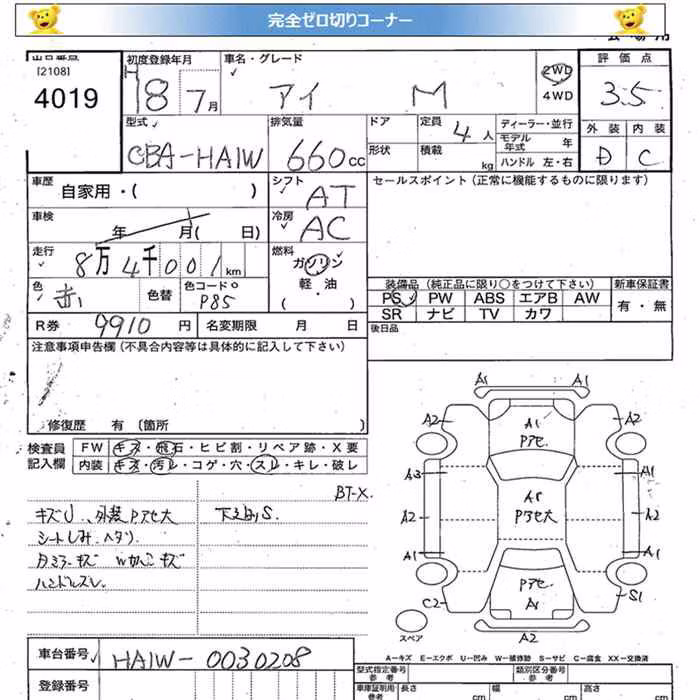 完全ゼロ切りコーナー
出品番号 初度登録年月 車名・グレード 評価点
[2108]
4019 H18 7月 アイ M 2WD 4WD 3.5
型式 排気量 ドア 定員 4人 ディーラー・並行 外装 内装
CBA-HA1W 660cc 形状 積載 kg モデル年式 年 D C
ハンドル 左・右
車歴 自家用・( ) シフト AT セールスポイント(正常に機能するものに限ります)
車検 年 月( 日) 冷房 AC
走行 8万4千001km 燃料 ガソリン
軽・油
( )
色 赤 色替 色コードo P85
装備品(純正品に限り○をつけて下さい) 新車保証書
PS PW ABS エアB AW 有・無
SR ナビ TV カワ
R券 9910円 名変期限 月 日 後日品
注意事項申告欄(不具合内容等は具体的に記入して下さい)
修復歴 有〔箇所 〕
検査員 FW キズ・飛石・ヒビ割・リペア跡・X要
記入欄 内装 キズ・汚レ・コゲ・穴・スレ・キレ・破レ
BT-X.
キズU、外装Pアセ大 下廻りS.
シートしみ、ヘタリ
ハンドルスレ
A1 A1
A2 A1 A2
Pアセ
A3 A1
A2 Pアセ大 A2
A1 A1
Pアセ
C2 A1 S1
スペア A2
A-キズ E-エクボ U-凹み W-補修跡 S-サビ C-腐食 XX-交換済
車台番号 HA1W-0030208 型式指定番号 参考 類別区分番号 参考
登録番号 車庫証明用 参考 長さ cm 幅 cm 高さ cm